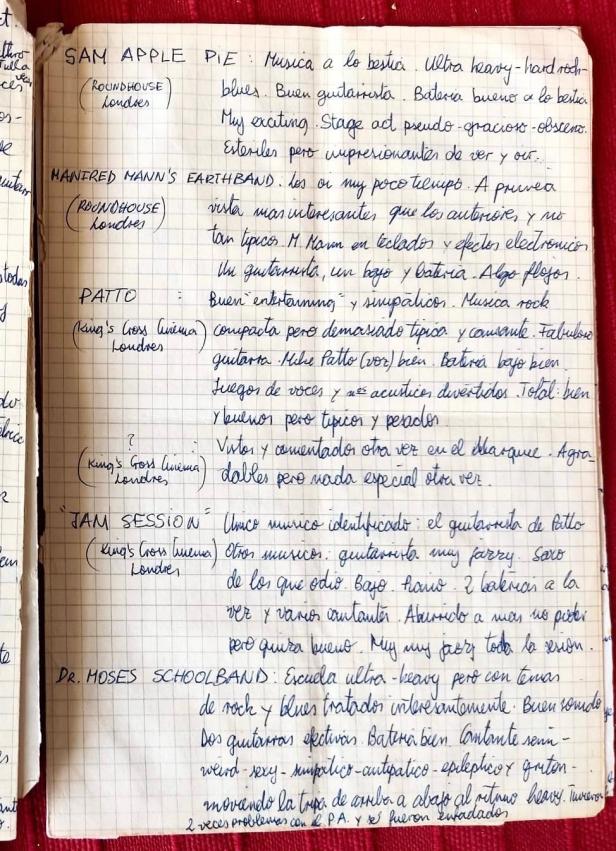 SAM APPLE PIE : Musica a lo bestia. Ultra heavy-hard rock-
(ROUNDHOUSE Londres) blues. Buen guitarrista. Bateria bueno a lo bestia
Muy exciting. Stage act pseudo-gracioso-obsceno.
Esteriles pero impresionantes de ver y oir.
MANFRED MANN'S EARTHBAND. Los oi muy poco tiempo. A primera
(ROUNDHOUSE Londres) vista mas interesantes que los anteriores y no
tan tipicos. M. Mann en teclados y efectos electronicos
Un guitarrista, un bajo y bateria. Algo flojos.
PATTO : Buen "entertaining" y simpáticos. Musica rock
(King's Cross Cinema Londres) compacta pero demasiado tipica y cansante. Fabuloso
guitarra. Mike Patto (voz) bien. Bateria bajo bien.
Juegos de voces y nos acusticos divertidos. Total: bien
y buenos pero tipicos y pesados.
? : Vistos y comentados otra vez en el Marquee. Agra-
(King's Cross Cinema Londres) dables pero nada especial otra vez.
"JAM SESSION" Unico musico identificado: el guitarrista de Patto
(King's Cross Cinema Londres) Otros musicos: guitarrista muy jazzy. Saxo
de los que odio. Bajo. Piano. 2 baterias a la
vez y varios cantantes. Aburrido a mas no poder
pero quiza bueno. Muy muy jazzy toda la sesion.
DR. MOSES SCHOOLBAND: Escuela ultra-heavy pero con temas
de rock y blues tratados interesantemente. Buen sonido
Dos guitarras efectivas. Bateria bien. Cantante semi-
weird-sexy-simpático-antipatico-epileptico y griton-
moviendo la tripa de arriba a abajo al ritmo heavy. Tuvieron
2 veces problemas con el P.A. y se fueron enfadados